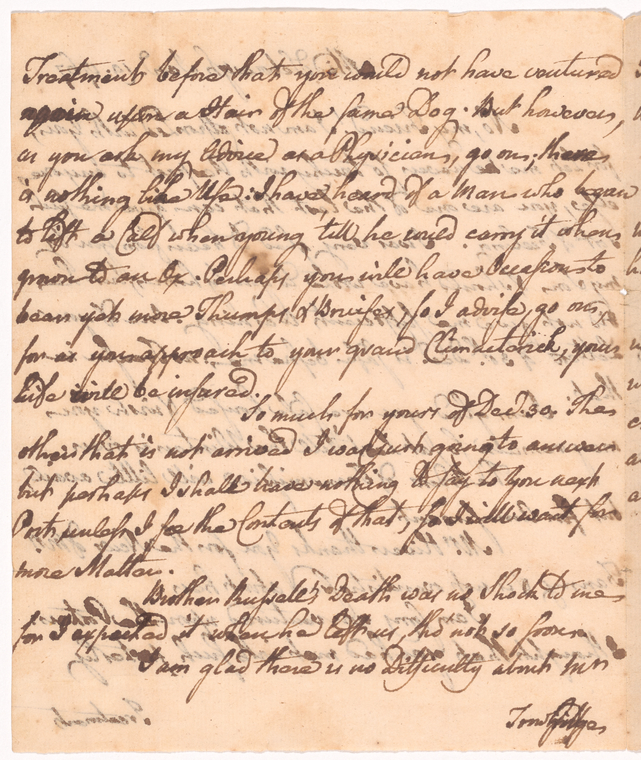 Treatment before that you would not have ventured
again upon a Hair of the same Dog. But however,
as you ask my Advice as a Physician, go on, there
is nothing like Use: I have heard of a Man who began
to lift a Calf when young 'till he could carry it when
grown to an Ox. Perhaps you will have Occasion to
bear yet more Thumps & Bruises, so I advise, go on,
for as you approach to your grand Climacterick, your
Life will be insured.
So much for yours of Decr. 30. The
other that is not arrived I was just going to answer
but perhaps I shall have nothing to say to you next
Post unless I see the Contents of that, so I will wait for
more Matter.
Brother Russell's Death was no Shock to me
for I expected it when he left us, tho' not so soon.
I am glad there is no Difficulty about Mr